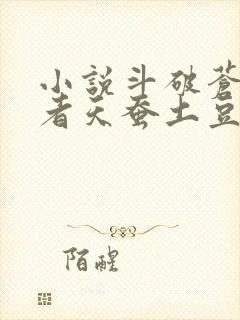 小說斗破蒼
者天蚕土豆
陌醒